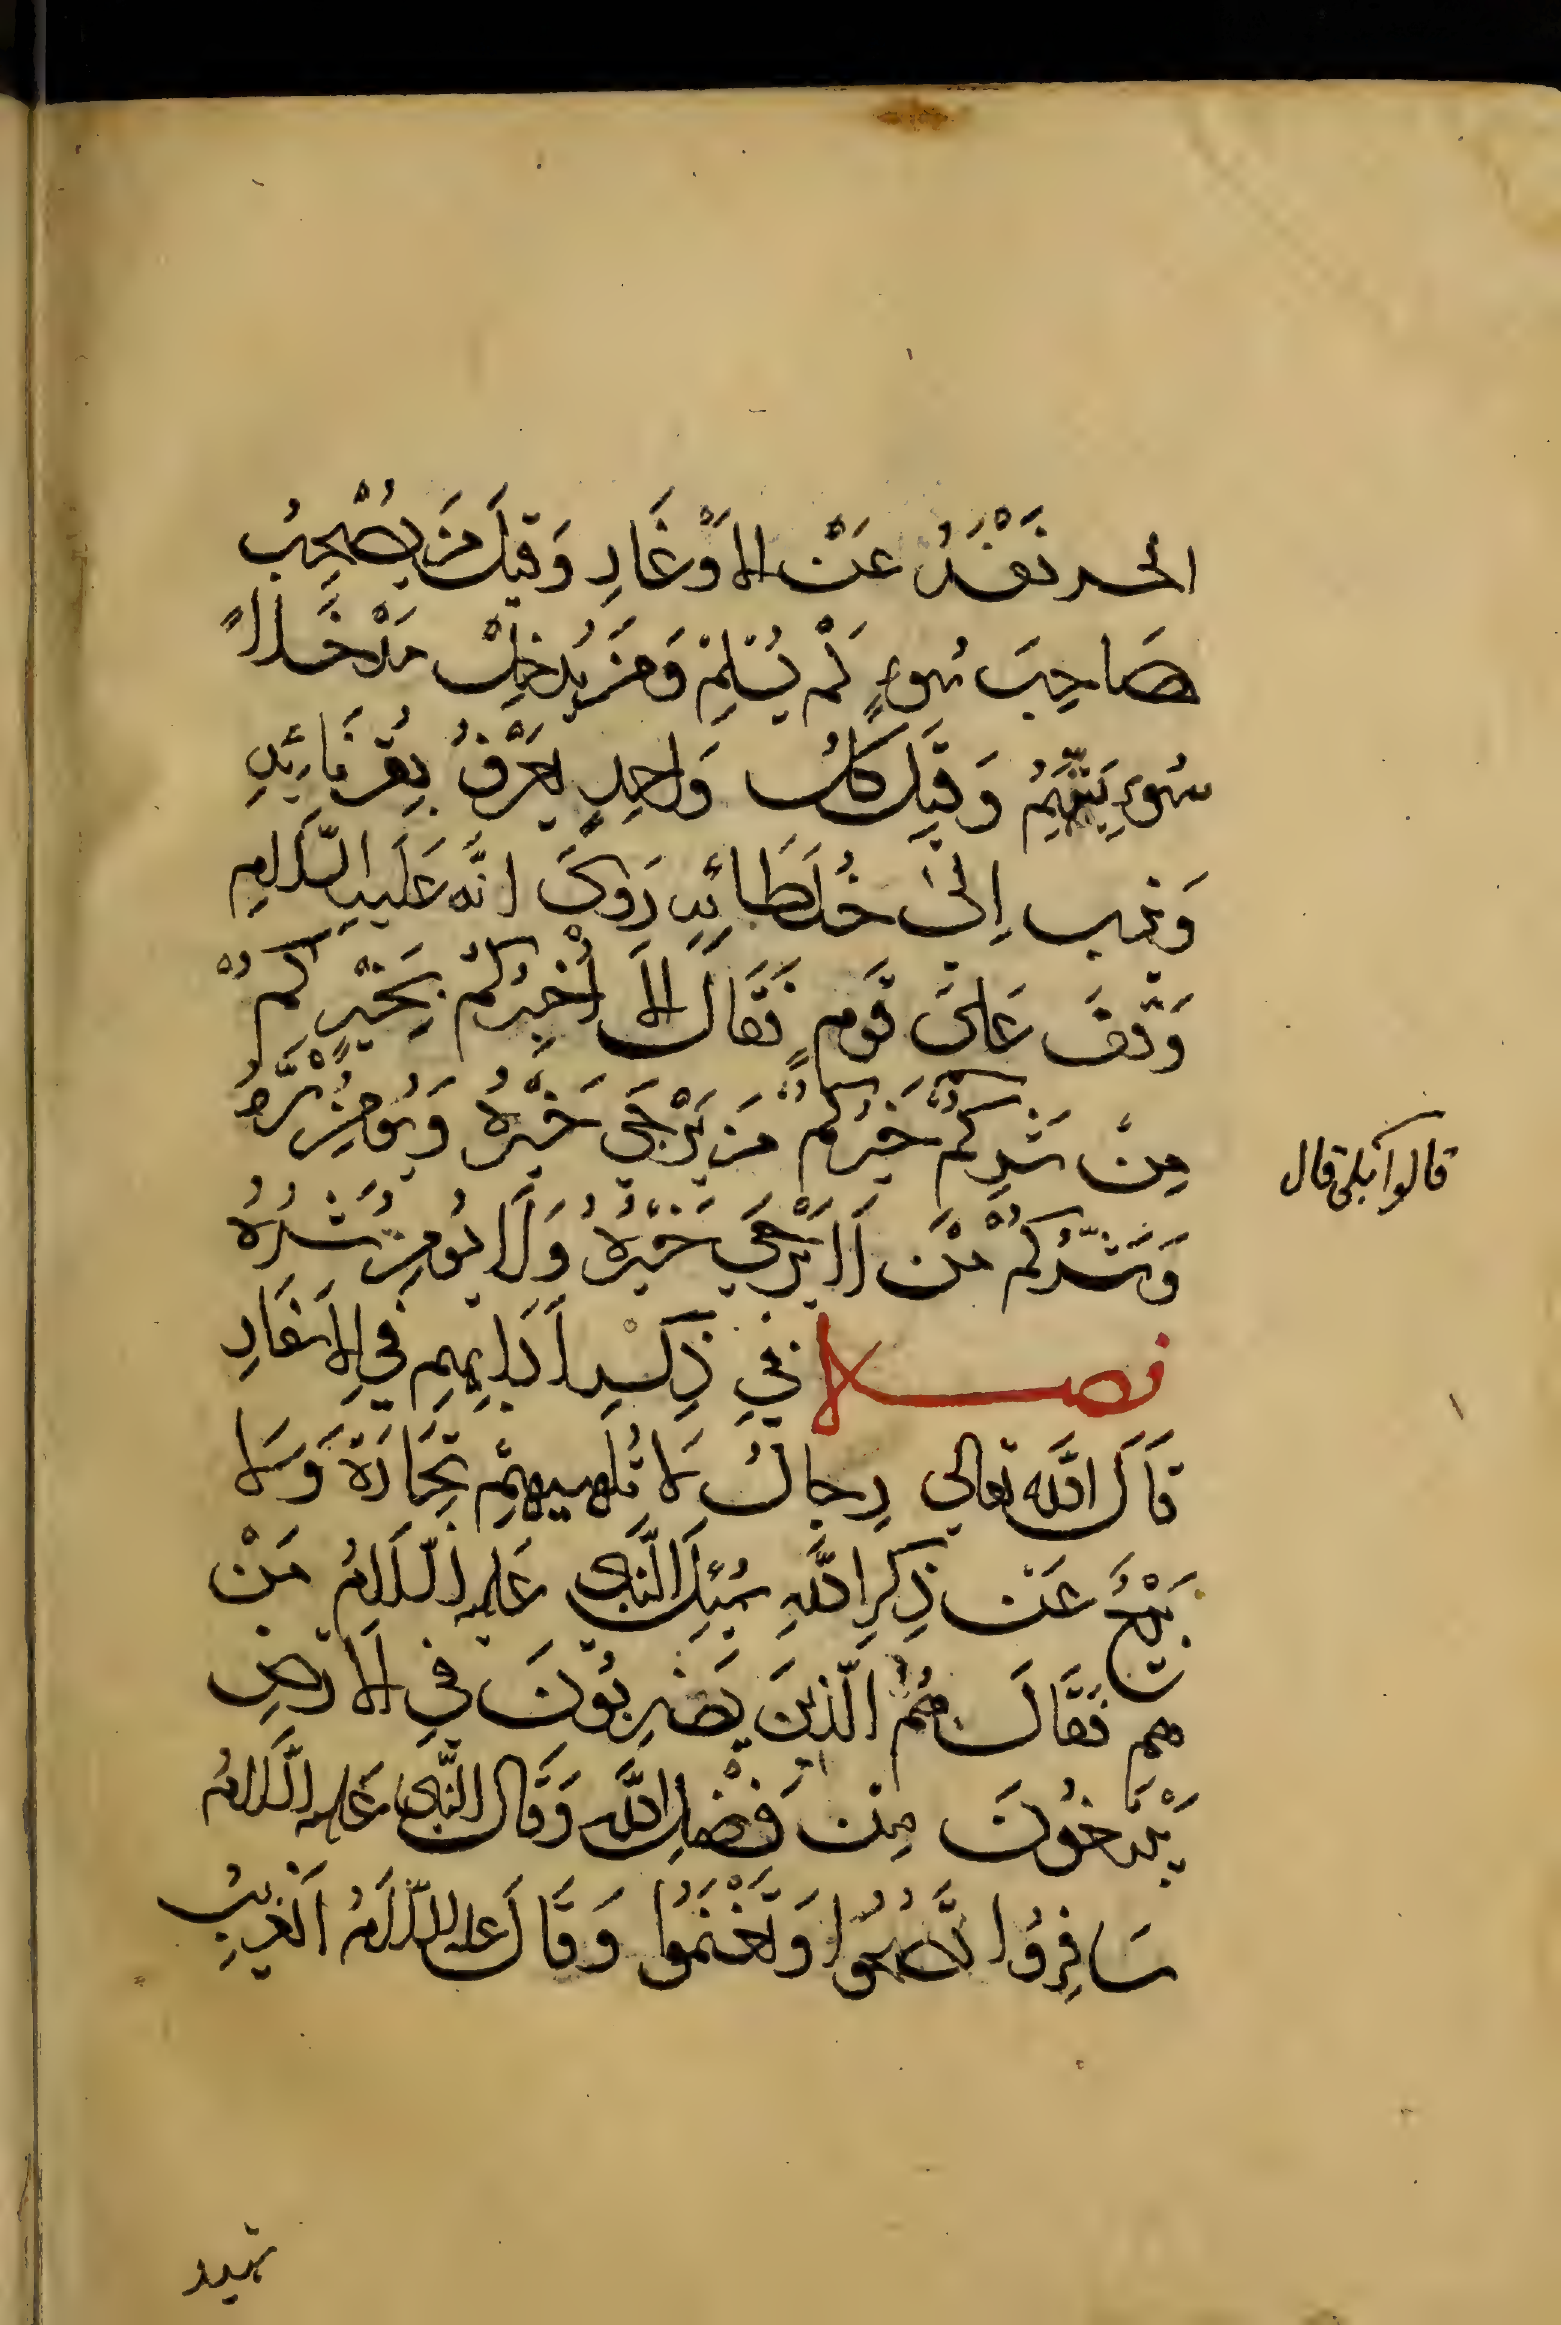 الحر نفسه عَنْ الاَوْغَادِ وَقيلَ مَن يَصْحَبُ
صَاحِبَ سُوءٍ لَمْ يَسْلَمْ وَمَن يَدْخُلْ مَدْخَلاً
سُوءٍ يُتَّهَمُ وَقيل كُلُّ وَاحِدٍ يُعْرَفُ بِقُرَنَائِهِ
وينسب اِلىٰ خُلَطَائِهِ رَوىَ انَّه عَلَيهِ السَّلَامِ
وَقَفَ عَلىَ قَومٍ فَقَالَ اَلاَ اُخْبِرُكُمْ بِخَيْرِكُمْ
مِنْ شَرِّكُمْ خَيْرُكُمْ مَن يُرْجَى خَيْرُهُ وَيُؤمَنُ شَرُّهُ
قالوا بلى قال
وَشَرُّكُمْ مَنْ لَا يُرْجَى خَيْرُهُ وَلَا يُؤمَنُ شَرُّهُ
فصل في ذِكْرِ اَدَابِهِم فيِ الاَسْفَارِ
قَالَ اللّه تعالى رِجالٌ لاَ تُلْهيهِمْ تِجَارَةٌ وَلَا
بَيْعٌ عَنْ ذِكرِ اللَّهِ سُئِلَ النَّبى عَليه السَّلَامُ مَنْ
هم فَقَالَ هُمُ الَّذِينَ يَضْرِبُونَ فِي الاَرضِ
يَبْتَغُونَ مِنْ فَضْلِ اللَّه وَقَال النَّبى عَليه السَّلَامُ
سَافِرُوا تَصِحُّوا وَتَغْنَمُوا وَقَالَ عليه السَّلَامُ اَلْغَرِيبُ
شهيد